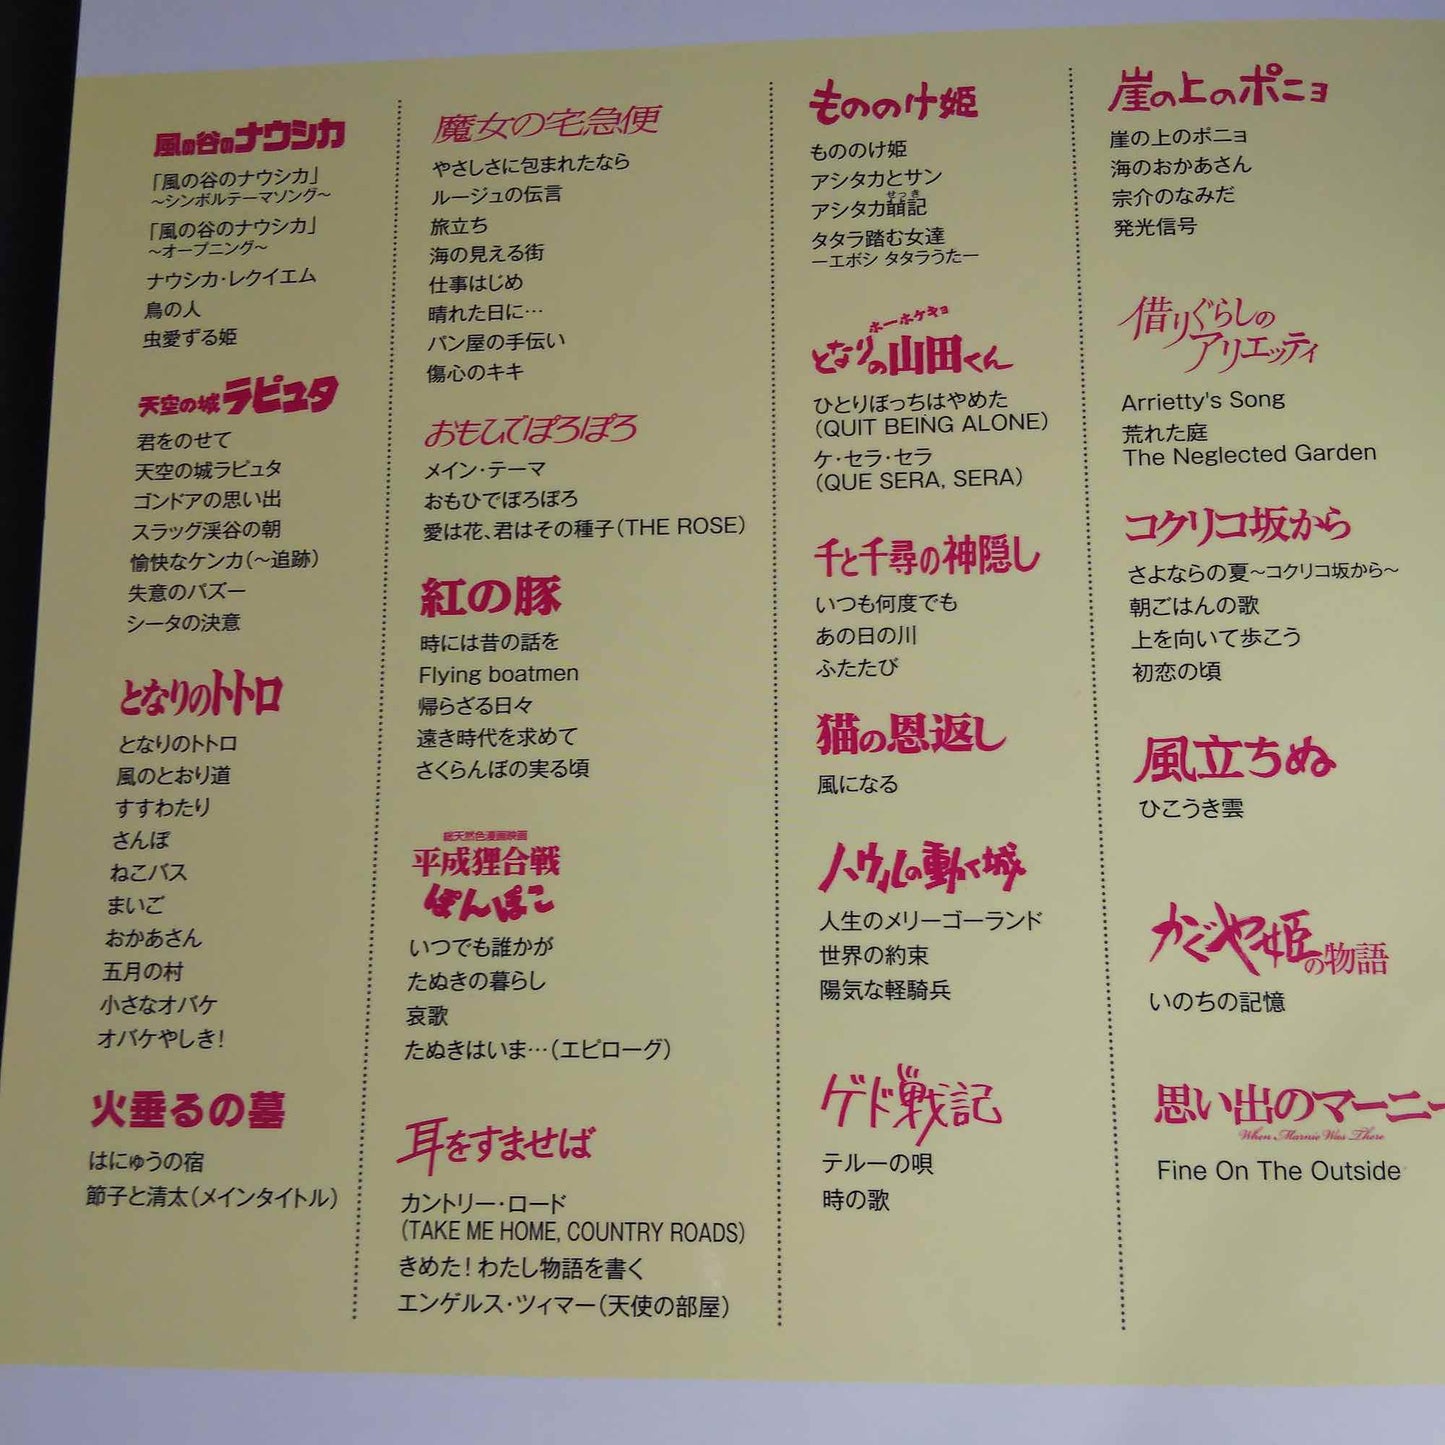 風の谷のナウシカ
「風の谷のナウシカ」
～シンボルテーマソング～
「風の谷のナウシカ」
～オープニング～
ナウシカ・レクイエム
鳥の人
虫愛ずる姫
天空の城ラピュタ
君をのせて
天空の城ラピュタ
ゴンドアの思い出
スラッグ渓谷の朝
愉快なケンカ(～追跡)
失意のパズー
シータの決意
となりのトトロ
となりのトトロ
風のとおり道
すすわたり
さんぽ
ねこバス
まいご
おかあさん
五月の村
小さなオバケ
オバケやしき!
火垂るの墓
はにゅうの宿
節子と清太(メインタイトル)
魔女の宅急便
やさしさに包まれたなら
ルージュの伝言
旅立ち
海の見える街
仕事はじめ
晴れた日に…
パン屋の手伝い
傷心のキキ
おもひでぽろぽろ
メイン・テーマ
おもひでぽろぽろ
愛は花、君はその種子(THE ROSE)
紅の豚
時には昔の話を
Flying boatmen
帰らざる日々
遠き時代を求めて
さくらんぼの実る頃
総天然色漫画映画
平成狸合戦
ぽんぽこ
いつでも誰かが
たぬきの暮らし
哀歌
たぬきはいま…(エピローグ)
耳をすませば
カントリー・ロード
(TAKE ME HOME, COUNTRY ROADS)
きめた! わたし物語を書く
エンゲルス・ツィマー(天使の部屋)
もののけ姫
もののけ姫
アシタカとサン
せっき
アシタカ𦻙記
タタラ踏む女達
ーエボシ タタラうたー
ホーホケキョ
となりの山田くん
ひとりぼっちはやめた
(QUIT BEING ALONE)
ケ・セラ・セラ
(QUE SERA, SERA)
千と千尋の神隠し
いつも何度でも
あの日の川
ふたたび
猫の恩返し
風になる
ハウルの動く城
人生のメリーゴーランド
世界の約束
陽気な軽騎兵
ゲド戦記
テルーの唄
時の歌
崖の上のポニョ
崖の上のポニョ
海のおかあさん
宗介のなみだ
発光信号
借りぐらしの
アリエッティ
Arrietty's Song
荒れた庭
The Neglected Garden
コクリコ坂から
さよならの夏～コクリコ坂から～
朝ごはんの歌
上を向いて歩こう
初恋の頃
風立ちぬ
ひこうき雲
かぐや姫の物語
いのちの記憶
思い出のマーニー
When Marnie Was There
Fine On The Outside